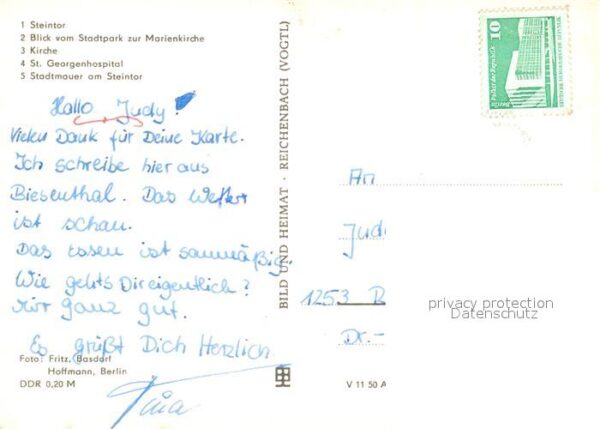 1 Steintor
2 Blick vom Stadtpark zur Marienkirche
3 Kirche
4 St. Georgenhospital
5 Stadtmauer am Steintor
Hallo Judy!
Vielen Dank für Deine Karte.
Ich schreibe hier aus
Biesenthal. Das Wetter
ist schau.
Das Essen ist saumäßig.
Wie gehts Dir eigentlich?
Mir ganz gut.
Es grüßt Dich Herzlich
Tina
Foto: Fritz, Basdorf
Hoffmann, Berlin
DDR 0,20 M
BILD UND HEIMAT · REICHENBACH (VOGTL)
V 11 50 A
10
Berlin, Palast der Republik
DEUTSCHE DEMOKRATISCHE REPUBLIK
An
Jud
1253 B
Dr.-
privacy protection
Datenschutz